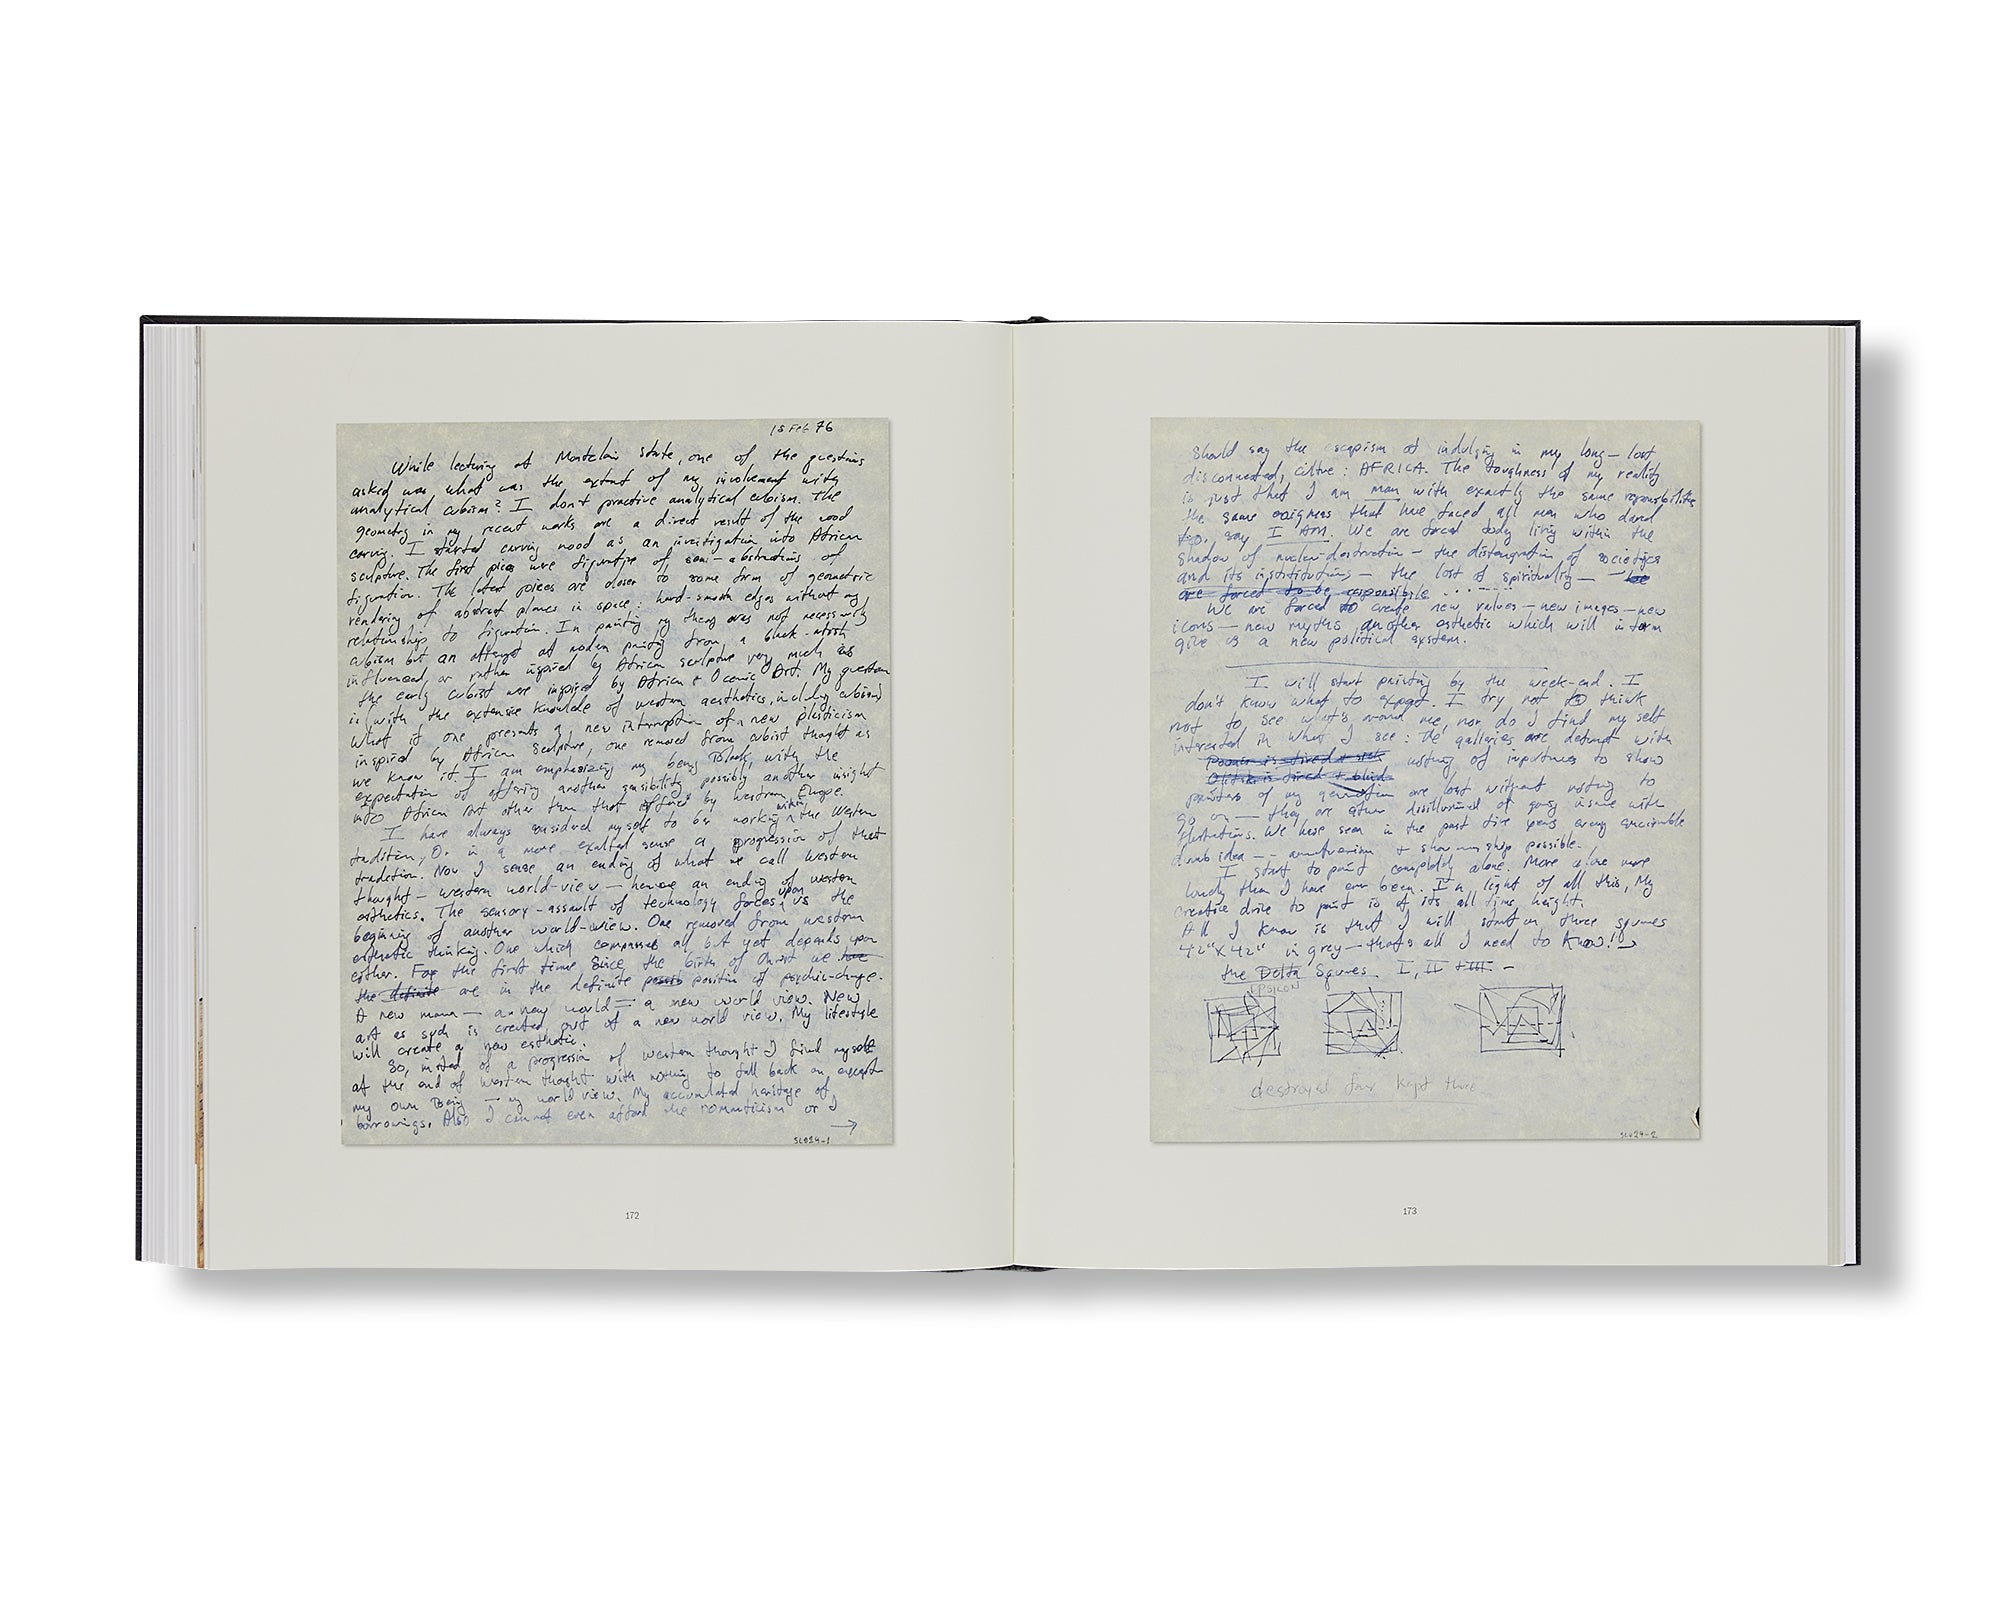 15 Feb 76
While lecturing at Montclair State, one of the questions
asked was what was the extent of my involvement with
analytical cubism? I don't practive analytical cubism. The
geometry in my recent works are a direct result of the wood
carving. I started carving wood as an investigation into African
sculpture. The first pieces were figurative of, semi-abstractions of
figuration. The latest pieces are closer to some form of geometric
rendering of abstract planes in space: hard-smooth edges without any
relationships to figuration. In painting my theory was not necessarily
cubism but an attempt at modern painting from a black-artist
influenced, or rather inspired by African sculpture very much as
the early cubist were inspired by African + Oceanic Art. My question
is (with the extensive knowlede of western aesthetics, including cubism)
what if one presents a new interruption of a new plasticism
inspired by African Sculpture, one removed from cubist thought as
we know it. I am emphasizing my being Black, with the
expectation of offering another sensibility possibly another insight
into African Art other than that by western Europe.
I have always considered myself to be working within the Western
tradition, Or in a more exalted sense a progression of that
tradition. Now I sense an ending of what we call western
thought — western world-view — hence an ending of western
esthetics. The sensory-assault of technology forces upon us the
beginning of another world-view. One removed from western
esthetic thinking. One which compasses all but yet depends upon
either. For the first time since the birth of Christ we have
the definite are in the definite position of psychic-change.
A new man — a new world — a new world view. New
art as such is created out of a new world view. My lifestyle
will create a new esthetic.
So, insted of a progression of western thought I find myself
at the end of western thought with nothing to fall back on except
my own Being — my world view. My accumulated heritage of
borrowings. Also I cannot even afford the romanticism or I
→
SL024-1
172
should say the escapism at indulging in my long-lost
disconnected, cultue: AFRICA. The toughness of my reality
is just that I am man with exactly the same responsibilities
the same enigmas that have faced all men who dared
to, say I AM. We are faced today living within the
shadow of nuclear-destruction — the distengration of societies
and its institutions — the lost of spirituality — we
are forced to be responsibile ......
We are forced to create new values — new images — new
icons — new myths another esthetic which will in turn
give us a new political system.
I will start painting by the week-end. I
don't know what to expect. I try not to think
not to, see what's around me, nor do I find my self
interested in what I see: The galleries are with
Poons is tired + sick nothing of importance to show
Olitski is tired + blind
painters of my generation are lost without nothing to
go on — they are either disillusioned or going insane with
flustrations. We have seen in the past five years every concievable
dumb idea — amateurism + showmanship possible.
I start to paint completely alone. More alone more
lonely than I have ever been. In light of all this, My
creative drive to paint is of its all time height.
All I know is that I will start on three squares
42"x42" in grey — that's all I need to know!! →
the Delta Squares I, II + III. —
EPSILON
destroyed four kept three
SL024-2
173